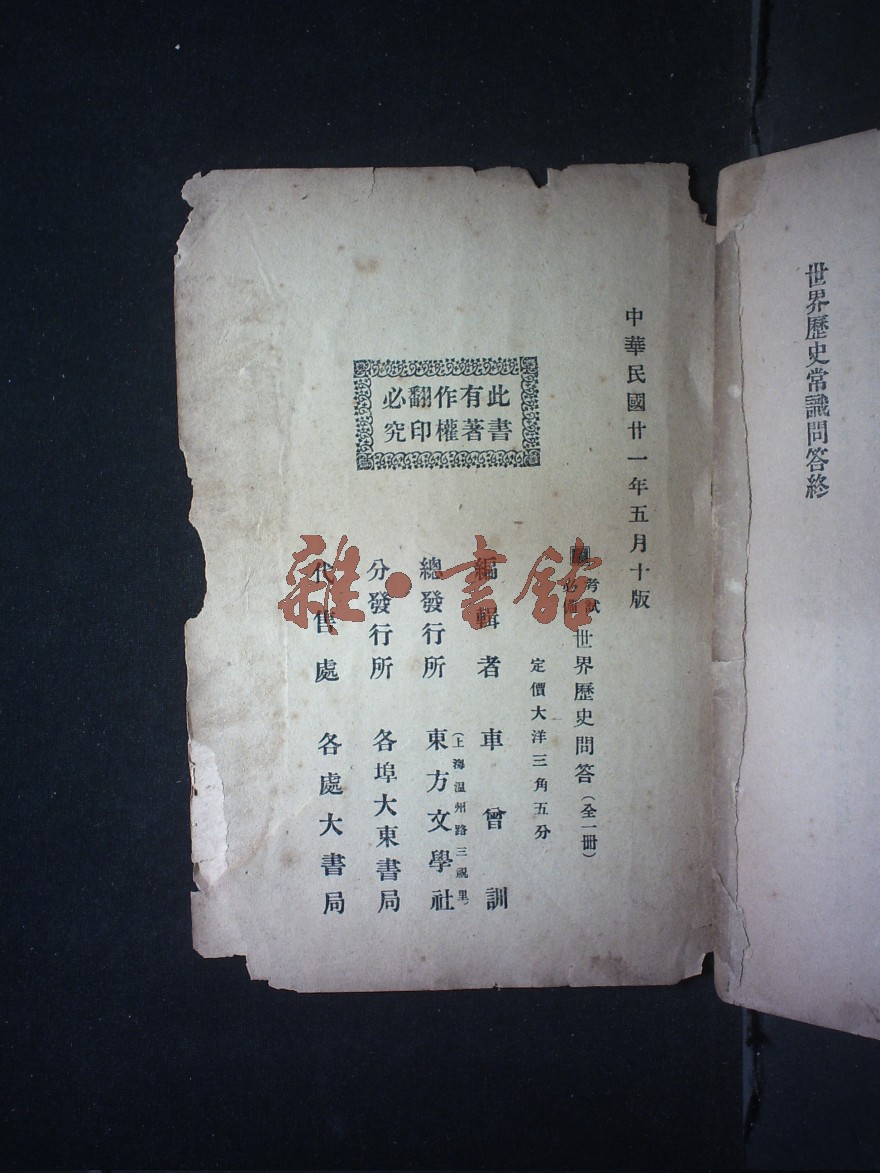 世界歷史常識問答終
中華民國廿一年五月十版
考試必備 世界歷史問答（全一册）
定價大洋三角五分
此書有著作權翻印必究
編輯者 車曾訓
總發行所 東方文學社
（上海溫州路三祝里）
分發行所 各埠大東書局
代售處 各處大書局
雜·書館